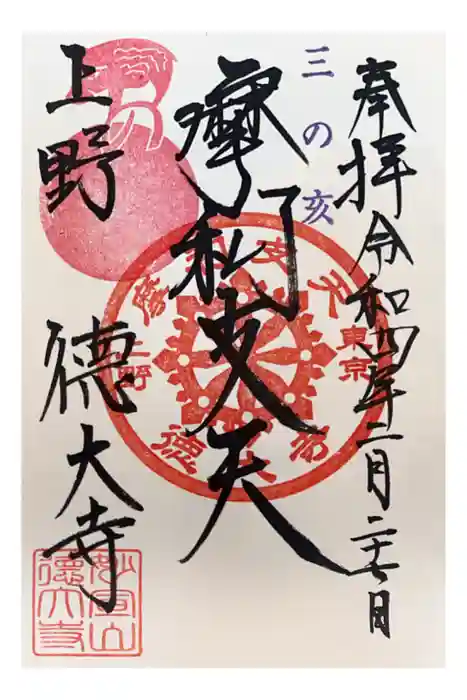 奉拝 令和四年二月二十七日
三の亥
摩利支天
上野 徳大寺
摩利支天
東京
上野
徳大寺
妙宣山
徳大寺